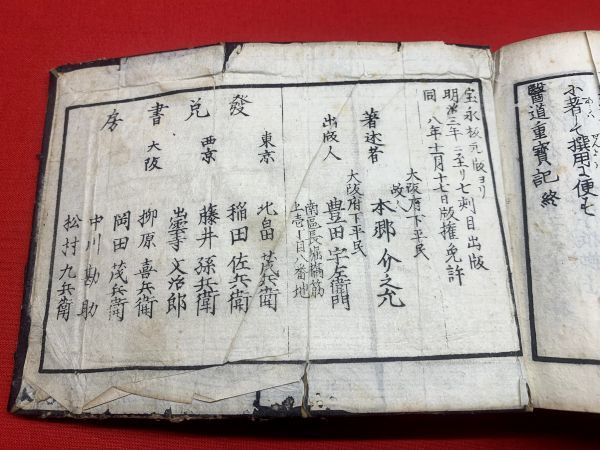 に著して撰用に便す
醫道重寳記 終
宝永板元版ヨリ
明治三年ニ至リ七刺目出版
同八年十一月十七日版権免許
大阪府下平民
著述者 故人 本郷介之允
大阪府下平民
出版人 豊田宇左衛門
南區長堀橋筋
壱丁目八番地
發兌書房
東京 北畠茂兵衛
稲田佐兵衛
西京 藤井孫兵衛
出雲寺文治郎
大阪 柳原喜兵衛
岡田茂兵衛
中川勘助
松村九兵衛